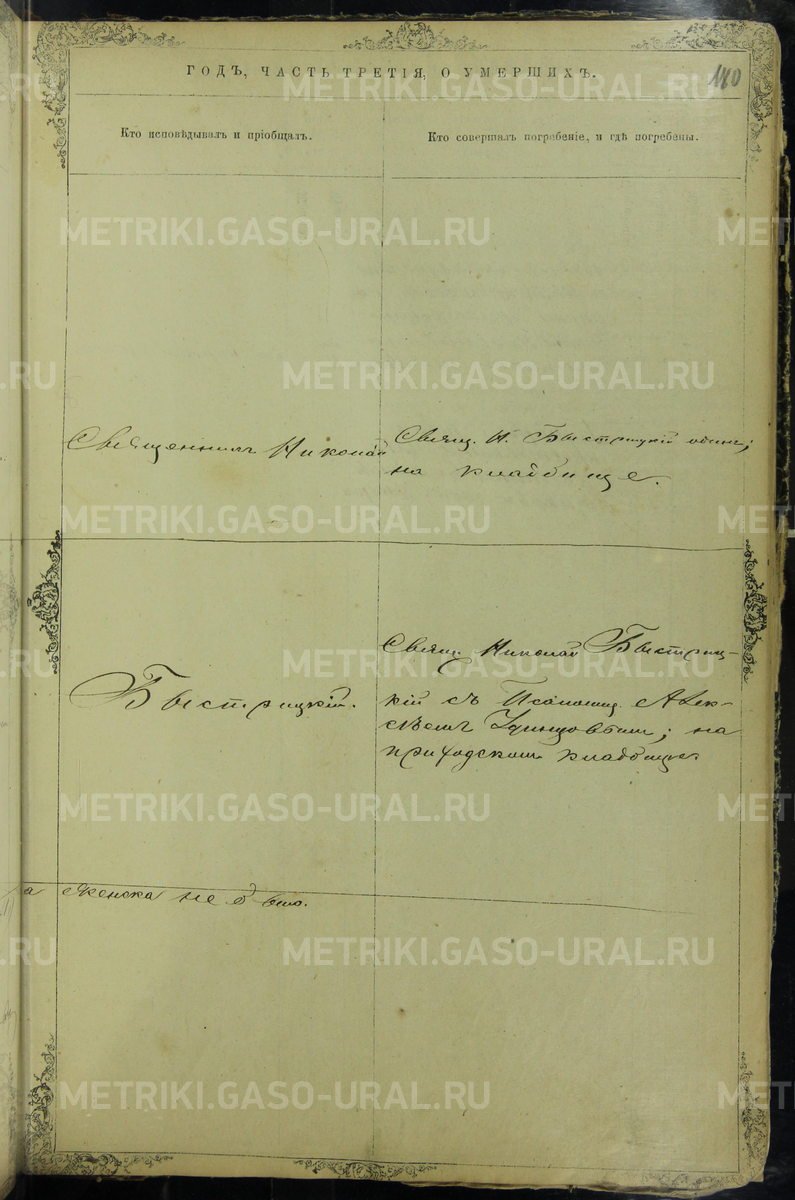 ГОДЪ, ЧАСТЬ ТРЕТІЯ, О УМЕРШИХЪ.
140
Кто исповѣдывалъ и пріобщалъ.
Кто совершалъ погребеніе, и гдѣ погребены.
Священникъ Николай
Свящ. Н. Быстрицкій одинъ;
на кладбище.
Быстрицкій.
Свящ. Николай Быстриц-
кій съ Псаломщ. Алек-
сѣемъ; на
приходскомъ кладбище
женска не было.
METRIKI.GASO-URAL.RU